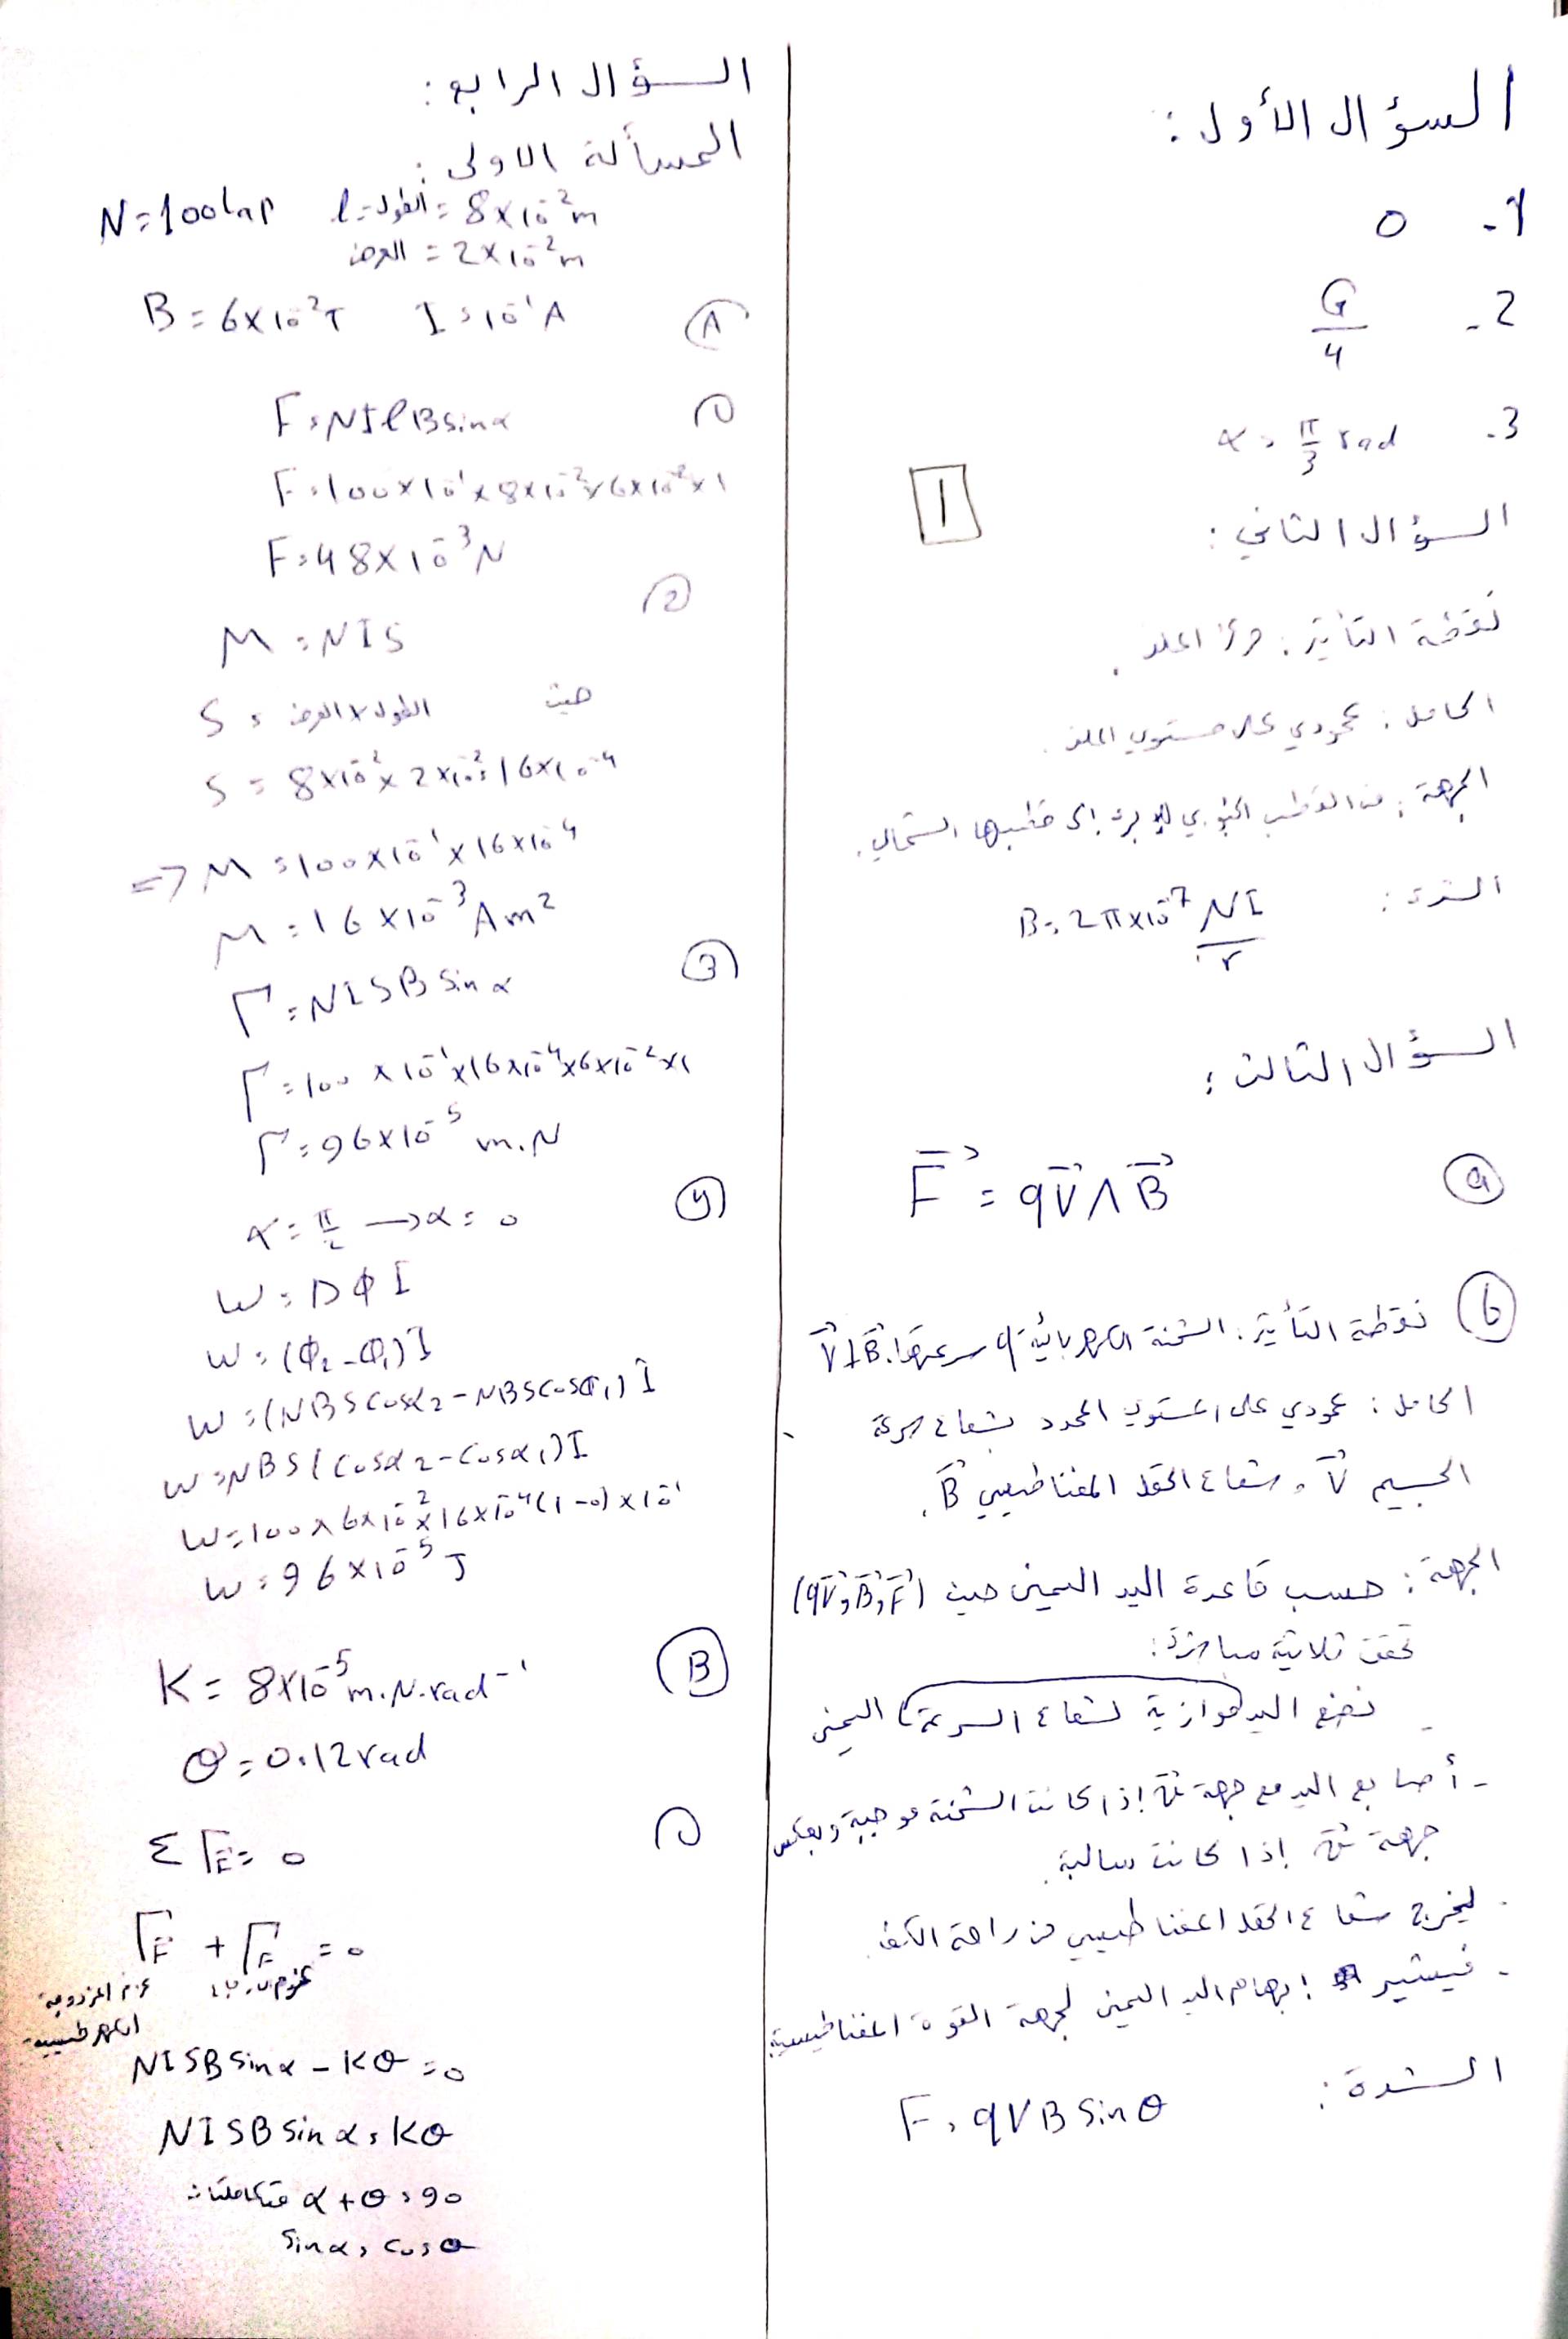 السؤال الأول:
1- 0
2- G/4
3- α = π/3 rad
1
السؤال الثاني:
نقطة التأثير: مركز الملف.
الحامل: عمودي على مستوي الملف.
الجهة: من القطب الجنوبي للإبرة إلى قطبها الشمالي.
الشدة: B = 2π×10⁻⁷ NI/r
السؤال الثالث:
a F⃗ = qV⃗ ∧ B⃗
b نقطة التأثير: الشحنة الكهربائية q سرعتها V⃗⊥B⃗.
الحامل: عمودي على المستوي المحدد بشعاع سرعة
الجسيم V⃗ و شعاع الحقل المغناطيسي B⃗.
الجهة: حسب قاعدة اليد اليمنى حيث (qV⃗, B⃗, F⃗)
تحقق ثلاثية مباشرة:
- نضع اليد موازية لشعاع السرعة اليمنى
- أصابع اليد مع جهة إذا كانت الشحنة موجبة وبعكس
جهة إذا كانت سالبة.
- ليخرج شعاع الحقل المغناطيسي من راحة الكف.
- فيشير إبهام اليد اليمنى لجهة القوة المغناطيسية
الشدة: F = qVB sinθ
السؤال الرابع:
المسألة الاولى:
N = 100 لفة l = الطول = 8×10⁻² m
العرض = 2×10⁻² m
B = 6×10⁻² T I = 10⁻¹ A
A
1 F = NIlB sinα
F = 100×10⁻¹×8×10⁻²×6×10⁻²×1
F = 48×10⁻³ N
2
M = NIS
حيث S = الطول × العرض
S = 8×10⁻²×2×10⁻² = 16×10⁻⁴
=> M = 100×10⁻¹×16×10⁻⁴
M = 16×10⁻³ Am²
3 Γ = NISB sinα
Γ = 100×10⁻¹×16×10⁻⁴×6×10⁻²×1
Γ = 96×10⁻⁵ m.N
4 α = π/2 → α = 0
W = ΔΦ I
W = (Φ₂ - Φ₁) I
W = (NBS cosα₂ - NBS cosα₁) I
W = NBS (cosα₂ - cosα₁) I
W = 100×6×10⁻²×16×10⁻⁴ (1-0)×10⁻¹
W = 96×10⁻⁵ J
B K = 8×10⁻⁵ m.N.rad⁻¹
θ = 0.12 rad
1 ΣΓ = 0
Γ + Γ = 0
عزم المزدوجة
الكهرطيسية
NISB sinα - Kθ = 0
NISB sinα = Kθ
α + θ = 90 متكاملتان
sinα = cosθ